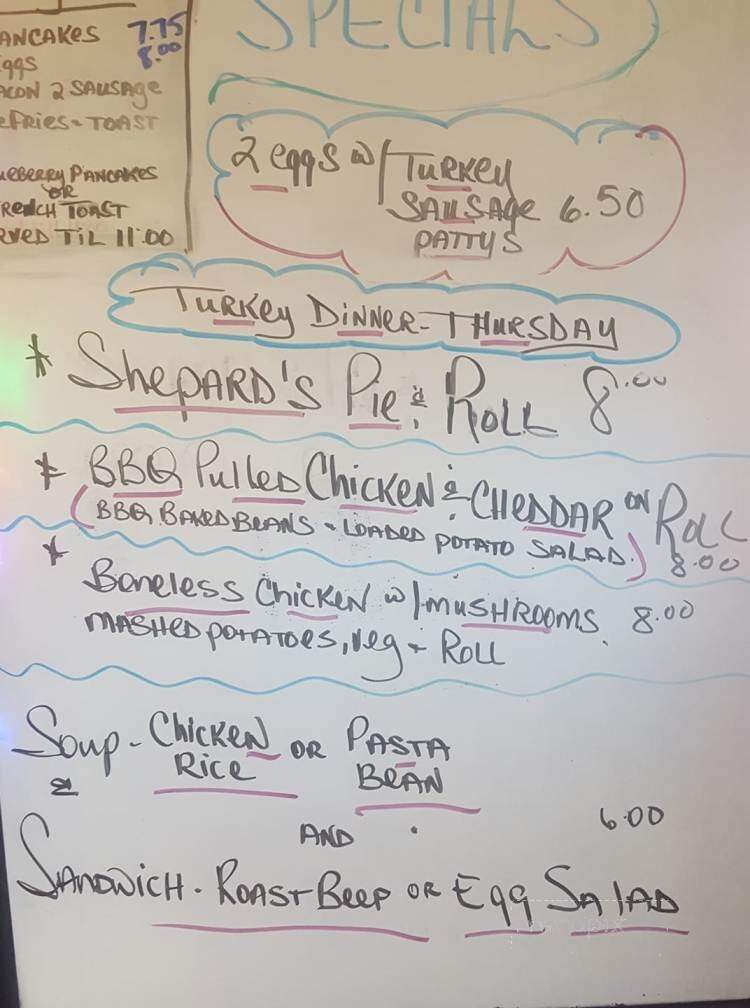 ANCAKES 7.75
ggs 8.00
ACON 2 SAUSAGE
eFRIES - TOAST
ueBERRY PANCAKES
OR
RENCH TOAST
RVED TIL 11:00
SPECIALS
2 eggs w/ TURKEY
SAUSAGE 6.50
PATTYS
TURKEY DINNER - THURSDAY
* SHEPARD'S PIE & ROLL 8.00
* BBQ PULLED CHICKEN & CHEDDAR ON ROLL
(BBQ BAKED BEANS - LOADED POTATO SALAD.) 8.00
* BONELESS CHICKEN w/ MUSHROOMS 8.00
MASHED POTATOES, VEG + ROLL
SOUP - CHICKEN OR PASTA
RICE BEAN
&
AND 6.00
SANDWICH - ROAST BEEF OR EGG SALAD